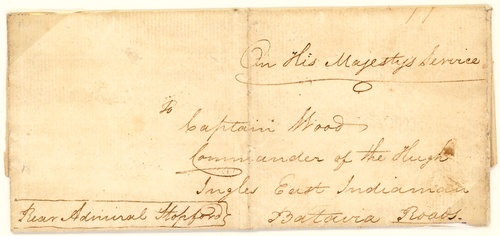 On His Majestys Service
To
Captain Wood
Commander of the Hugh
Ingles East Indiaman
Batavia Roads.
Rear Admiral Stopford